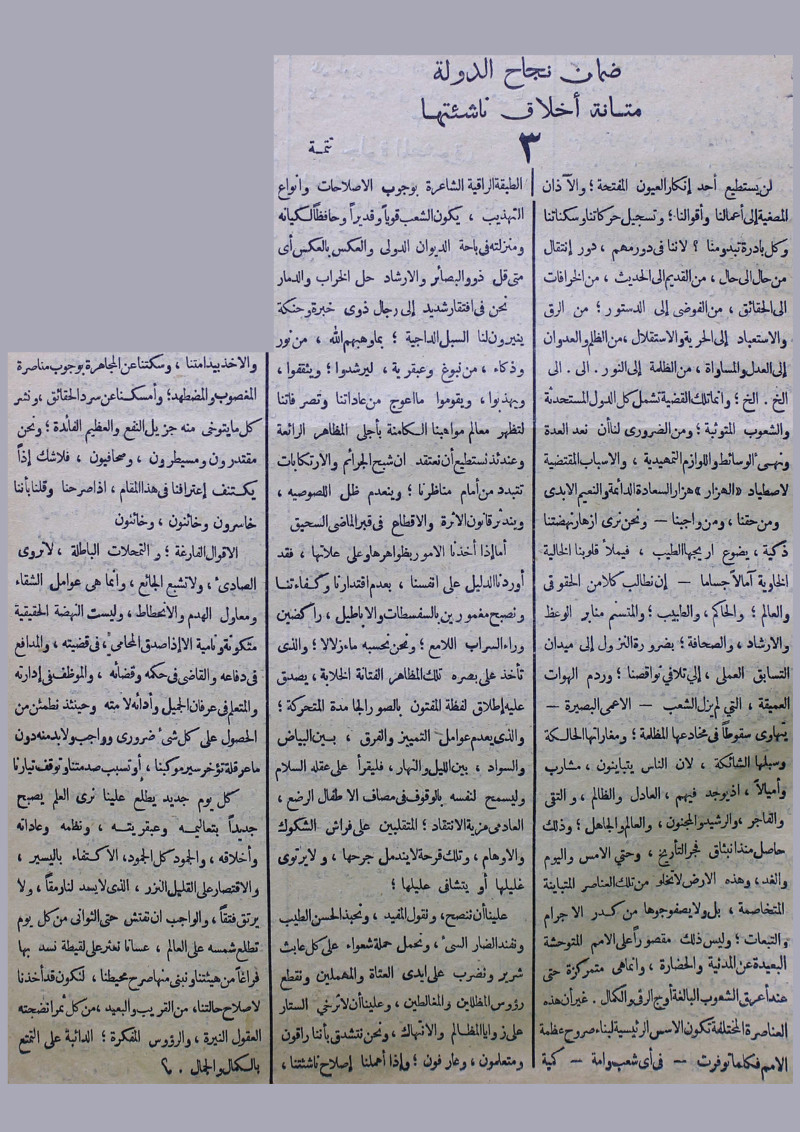 ضمان نجاح الدولة
متانة أخلاق ناشئتها
٣
تتمة
لن يستطيع أحد إنكار العيون المفتحة ؛ والآذان
المصغية إلى أعمالنا وأقوالنا ؛ وتسجيل حركاتنا وسكناتنا
وكل بادرة تبدو منا ؟ لاننا فى دور مهم ، دور إنتقال
من حال الى حال ، من القديم الى الحديث ، من الخرافات
الى الحقائق ، من الفوضى إلى الدستور ؛ من الرق
والاستعباد إلى الحرية والاستقلال ، من الظلم والعدوان
إلى العدل والمساواة ، من الظلمة إلى النور . الى . الى
الخ . الخ ؛ وانما تلك القضية تشمل كل الدول المستحدثة
والشعوب المتوثبة ؛ ومن الضرورى لنا أن نعد العدة
ونهىء الوسائط واللوازم التمهيدية ، والاسباب المقتضية
لاصطياد «الهزار» هزار السعادة الدائمة والنعيم الابدى
ومن حقنا ، ومن واجبنا — ونحن نرى ازهار نهضتنا
ذكية ، يضوع اريجها الطيب ، فيملأ قلوبنا الخالية
الخاوية آمالاً جساما — إن نطالب كلا من الحقوقى
والعالم ؛ والحاكم ، والطبيب ؛ والمتسنم منابر الوعظ
والارشاد ، والصحافة ؛ بضرورة النزول إلى ميدان
التسابق العملى ، إلى تلافي نواقصنا ؛ وردم الهوات
العميقة ، التي لم يزل الشعب — الاعمى البصيرة —
يتهاوى سقوطاً فى مخادعها المظلمة ؛ ومغاراتها الحالكة
وسبلها الشائكة ، لان الناس يتباينون ، مشارب
وأميالاً ، اذ يوجد فيهم ، العادل والظالم ، والتقى
والفاجر ، والرشيد والمجنون ، والعالم والجاهل ؛ وذلك
حاصل منذ انبثاق فجر التأريخ ، وحتي الامس واليوم
والغد ، وهذه الارض لا تخلو من تلك العناصر المتباينة
المتخاصمة ، بل ولا يصفو جوها من كدر الاجرام
والتبعات ؛ وليس ذلك مقصوراً على الامم المتوحشة
البعيدة عن المدنية والحضارة ، وانما هى متمركزة حتى
عند أعرق الشعوب البالغة أوج الرقى والكمال . غير أن هذه
العناصرة المختلفة تكون الاسس الرئيسية لبناء صروح عظمة
الامم فكلما توفرت — فى أى شعب وامة — كمية
الطبقة الراقية الشاعرة بوجوب الاصلاحات وانواع
التهذيب ، يكون الشعب قوياً وقديراً وحافظاً لكيانه
ومنزلته فى باحة الديوان الدولى والعكس بالعكس أى
متى قل ذوو البصائر والارشاد حل الخراب والدمار
نحن فى افتقار شديد إلى رجال ذوى خبرة وحنكة
ينيرون لنا السبل الداجية ؛ بما وهبهم الله ، من نور
وذكاء ، من نبوغ وعبقرية ، ليرشدوا ؛ ويثقفوا ،
ويهذبوا ، ويقوموا ما اعوج من عاداتنا وتصرفاتنا
لتظهر معالم مواهبنا الكامنة بأجلى المظاهر الرائعة
وعندئذ نستطيع أن نعتقد ان شبح الجرائم والارتكابات
تتبدد من أمام مناظرنا ؛ وينعدم ظل اللصوصيه ،
ويندثر قانون الاثرة والاقطاع فى قبر الماضى السحيق
أما إذا أخذنا الامور بظواهرها وعلى علاتها ، فقد
أوردنا الدليل على انفسنا ، بعدم اقتدارنا وكفاءتنا
ونصبح مغمورين بالسفسطات والاباطيل ، راكضين
وراء السراب اللامع ؛ ونحن نحسبه ماء زلالا ؛ والذى
تأخذ على بصره تلك المظاهر الفتانة الخلابة ، يصدق
عليه إطلاق لفظة المفتون بالصور الجامدة المتحركة ؛
والذى يعدم عوامل التمييز والفرق ، بين البياض
والسواد ، بين الليل والنهار ، فليقرأ على عقله السلام
وليسمح لنفسه بالوقوف فى مصاف الاطفال الرضع ،
العادمى مزية الانتقاد ؛ المتقلبين على فراش الشكوك
والاوهام ، وتلك قرحة لا يندمل جرحها ، ولا يرتوى
غليلها أو يتشافى عليلها ؛
علينا أن ننصح ، ونقول المفيد ، ونحبذ الحسن الطيب
ونفند الضار السىء ، ونحمل حملة شعواء على كل عابث
شرير ونضرب على ايدى العتاة والمهملين ونقطع
رؤوس المظللين والمغالطين ، وعلينا أن لا نرخي الستار
على زوايا المظالم والانتهاك ، ونحن نتشدق بأننا راقون
ومتعلمون ، وعارفون ؛ وإذا أهملنا إصلاح ناشئتنا ،
والاخذ بيد امتنا ، وسكتنا عن المجاهرة بوجوب مناصرة
المغصوب والمضطهد ؛ وأمسكنا عن سرد الحقائق ، ونشر
كل ما يتوخى منه جزيل النفع والعظيم الفائدة ؛ ونحن
مقتدرون ومسيطرون ، وصحافيون ، فلا شك إذاً
يكتنف إعترافنا فى هذا المقام ، اذا صرحنا وقلنا بأننا
خاسرون وخائنون ، وخائنون
الاقوال الفارغة ؛ والتمحلات الباطلة ، لا تروى
الصادى ، ولا تشبع الجائع ، وأنما هى عوامل الشقاء
ومعاول الهدم والانحطاط ، وليست النهضة الحقيقية
متكونة ونامية الا إذا صدق المحامى ، فى قضيته ، والمدافع
فى دفاعه والقاضى فى حكمه وقضائه ، والموظف فى إدارته
والمتعلم فى عرفان الجميل وأدائه لامته وحينئذ نطمئن من
الحصول على كل شىء ضرورى وواجب ولا بد منه دون
ما عرقلة تؤخر سير موكبنا ، أو تسبب صدمتنا وتوقف تيارنا
كل يوم جديد يطلع علينا نرى العلم يصبح
جديداً بتعاليمه وعبقريته ، ونظمه وعاداته
وأخلاقه ، والجمود كل الجمود، الاكتفاء باليسير ،
والاقتصار على القليل النزر ، الذى لا يسد لنا رمقاً ، ولا
يرتق فتقاً ، والواجب ان نفتش حتى الثوانى من كل يوم
تطلع شمسه على العالم ، عسانا نعثر على لقيطة نسد بها
فراغاً من هيئتنا ونبنى منها صرح محيطنا ، لنكون قد أخذنا
لاصلاح حالتنا، من القريب والبعيد ، من كل ثمر انضجته
العقول النيرة ، والرؤوس المفكرة ؛ الدائبة على التمتع
بالكمال والجمال .